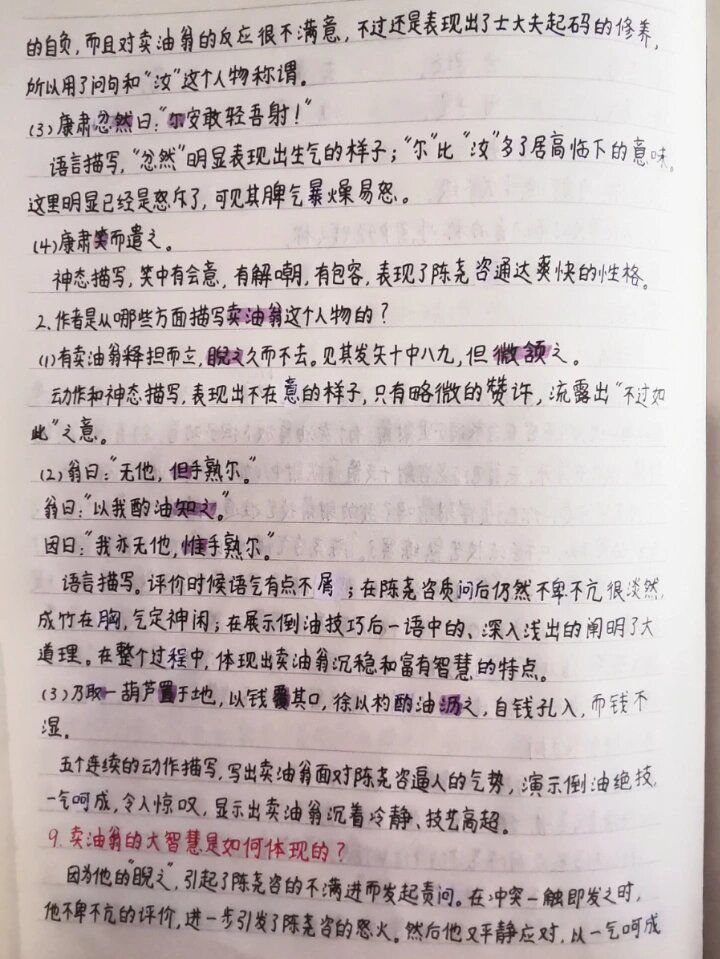 的自负,而且对卖油翁的反应很不满意,不过还是表现出了士大夫起码的修养,
所以用了问句和“汝”这个人物称谓。
(3)康肃忽然曰:“尔安敢轻吾射!”
语言描写,“忽然”明显表现出生气的样子;“尔”比“汝”多了居高临下的意味。
这里明显已经是怒斥了,可见其脾气暴燥易怒。
(4)康肃笑而遣之。
神态描写,笑中有会意,有解嘲,有包容,表现了陈尧咨通达爽快的性格。
2.作者是从哪些方面描写卖油翁这个人物的?
(1)有卖油翁释担而立,睨之久而不去。见其发矢十中八九,但微颔之。
动作和神态描写,表现出不在意的样子,只有略微的赞许,流露出“不过如
此”之意。
(2)翁曰:“无他,但手熟尔。”
翁曰:“以我酌油知之。”
因曰:“我亦无他,惟手熟尔。”
语言描写。评价时候语气有点不屑;在陈尧咨质问后仍然不卑不亢很淡然,
成竹在胸,气定神闲;在展示倒油技巧后一语中的、深入浅出的阐明了大
道理。在整个过程中,体现出卖油翁沉稳和富有智慧的特点。
(3)乃取一葫芦置于地,以钱覆其口,徐以杓酌油沥之,自钱孔入,而钱不
湿。
五个连续的动作描写,写出卖油翁面对陈尧咨逼人的气势,演示倒油绝技,
一气呵成,令人惊叹,显示出卖油翁沉着冷静、技艺高超。
9.卖油翁的大智慧是如何体现的?
因为他的“睨之”,引起了陈尧咨的不满进而发起责问。在冲突一触即发之时,
他不卑不亢的评价,进一步引发了陈尧咨的怒火。然后他又平静应对,以一气呵成